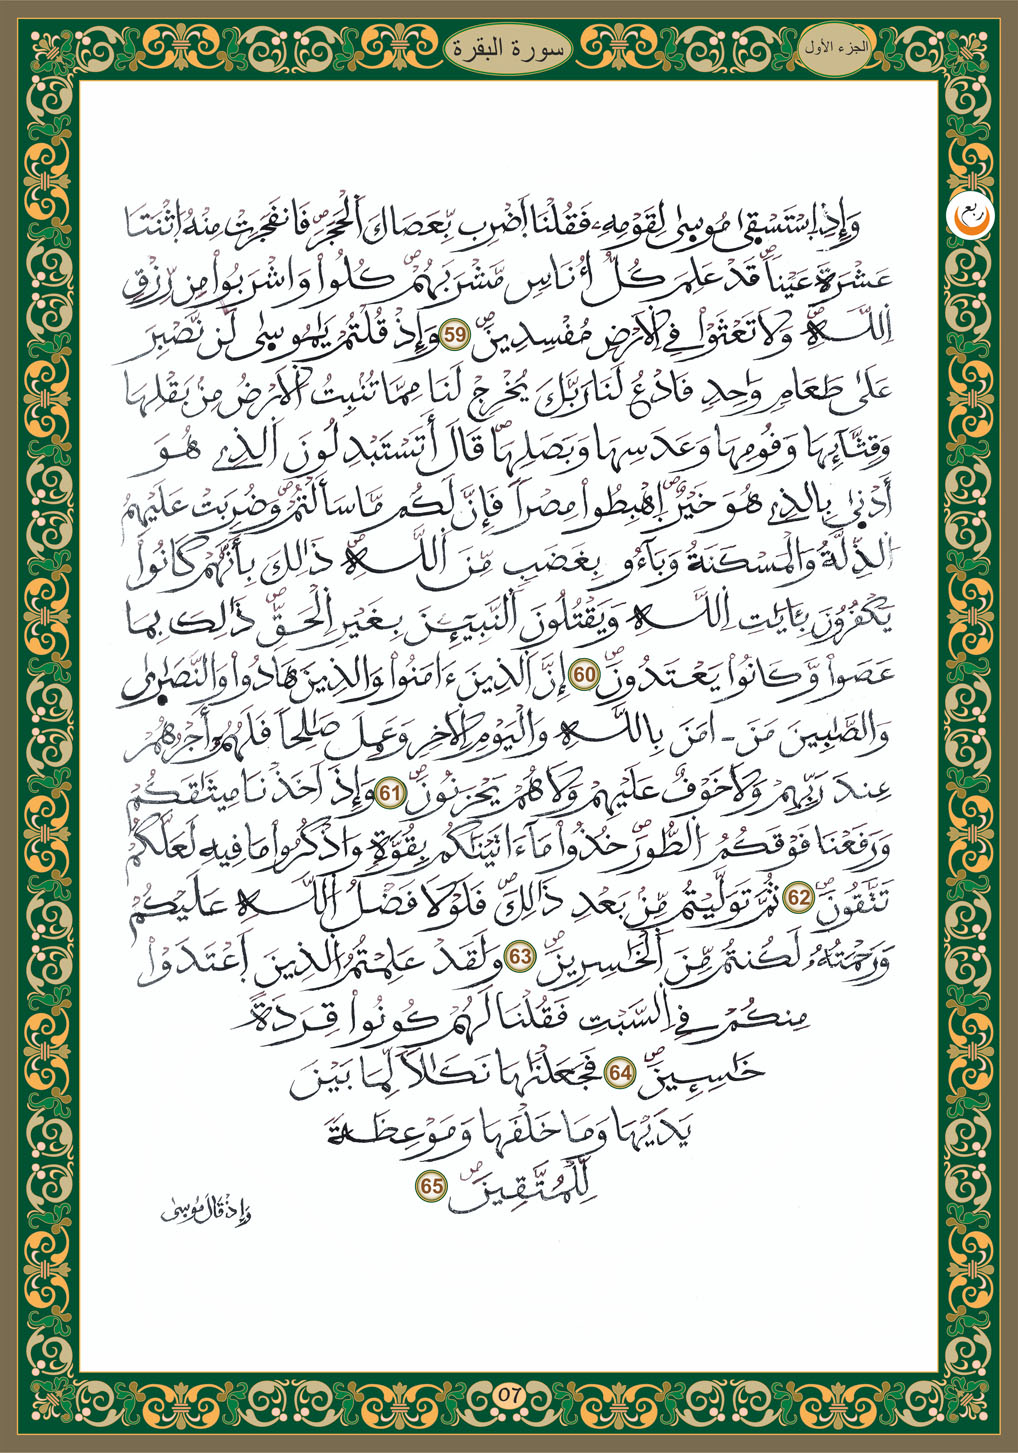 الجزء الأول
سورة البقرة
ربع
وَإِذِ اِسْتَسْقىٰ مُوسىٰ لِقَوْمِهِۦ فَقُلْنَا اَضْرِب بِّعَصَاكَ اَلْحَجَرَۖ فَانفَجَرَتْ مِنْهُ اُثْنَتَا
عَشْرَةَ عَيْناٗۖ قَدْ عَلِمَ كُلُّ أُنَاسٖ مَّشْرَبَهُمْۖ كُلُواْ وَاشْرَبُواْ مِن رِّزْقِ
اِللَّهِۖ وَلَا تَعْثَوْاْ فِے اِلَارْضِ مُفْسِدِينَۖ 59 وَإِذْ قُلْتُمْ يَٰمُوسىٰ لَن نَّصْبِرَ
عَلَىٰ طَعَامٖ وَٰحِدٖ فَادْعُ لَنَا رَبَّكَ يُخْرِجْ لَنَا مِمَّا تُنۢبِتُ اُلَارْضُ مِنۢ بَقْلِهَا
وَقِثَّآئِهَا وَفُومِهَا وَعَدَسِهَا وَبَصَلِهَاۖ قَالَ أَتَسْتَبْدِلُونَ اَلذِے هُوَ
أَدْنىٰ بِالذِے هُوَ خَيْرٌۖ اِهْبِطُواْ مِصْراٗ فَإِنَّ لَكُم مَّا سَأَلْتُمْۖ وَضُرِبَتْ عَلَيْهِمُ
اُلذِّلَّةُ وَالْمَسْكَنَةُ وَبَآءُو بِغَضَبٖ مِّنَ اَللَّهِۖ ذَٰلِكَ بِأَنَّهُمْ كَانُواْ
يَكْفُرُونَ بِـَٔايَٰتِ اِللَّهِ وَيَقْتُلُونَ اَلنَّبِيٓـِٕينَ بِغَيْرِ اِلْحَقِّۖ ذَٰلِكَ بِمَا
عَصَواْ وَّكَانُواْ يَعْتَدُونَۖ 60 إِنَّ اَلذِينَ ءَامَنُواْ وَالذِينَ هَادُواْ وَالنَّصَٰرىٰ
وَالصَّٰبِينَ مَنَ ـ امَنَ بِاللَّهِ وَالْيَوْمِ اِلَاخِرِ وَعَمِلَ صَٰلِحاٗ فَلَهُمُۥٓ أَجْرُهُمْ
عِندَ رَبِّهِمْ وَلَا خَوْفٌ عَلَيْهِمْ وَلَا هُمْ يَحْزَنُونَۖ 61 وَإِذَ اَخَذْنَا مِيثَٰقَكُمْ
وَرَفَعْنَا فَوْقَكُمُ اُلطُّورَۖ خُذُواْ مَآ ءَاتَيْنَٰكُم بِقُوَّةٖۖ وَاذْكُرُواْ مَا فِيهِ لَعَلَّكُمْ
تَتَّقُونَۖ 62 ثُمَّ تَوَلَّيْتُم مِّنۢ بَعْدِ ذَٰلِكَۖ فَلَوْلَا فَضْلُ اُللَّهِ عَلَيْكُمْ
وَرَحْمَتُهُۥ لَكُنتُم مِّنَ اَلْخَٰسِرِينَۖ 63 وَلَقَدْ عَلِمْتُمُ اُلذِينَ اَعْتَدَوْاْ
مِنكُمْ فِے اِلسَّبْتِ فَقُلْنَا لَهُمْ كُونُواْ قِرَدَةً
خَٰسِـِٕينَۖ 64 فَجَعَلْنَٰهَا نَكَٰلاٗ لِّمَا بَيْنَ
يَدَيْهَا وَمَا خَلْفَهَا وَمَوْعِظَةٗ
لِّلْمُتَّقِينَۖ 65
وَإِذْ قَالَ مُوسىٰ
07